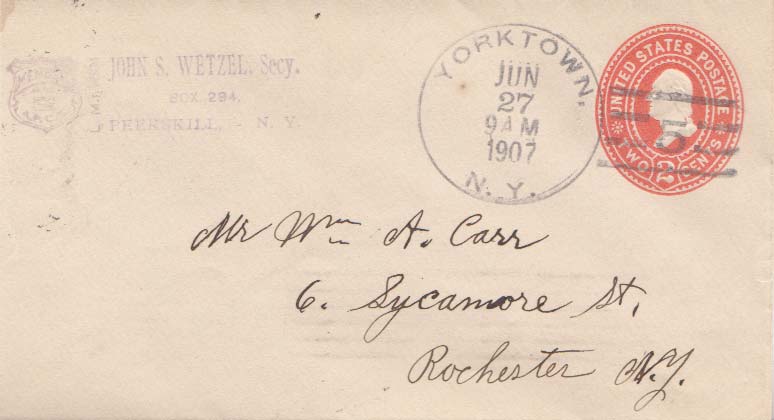 JOHN S. WETZEL, Secy.
BOX 294,
PEEKSKILL, - N. Y.
YORKTOWN,
JUN
27
9 AM
1907
N. Y.
UNITED STATES POSTAGE
TWO 2 CENTS
5
Mr Wm A. Carr
6. Sycamore St,
Rochester N.Y.